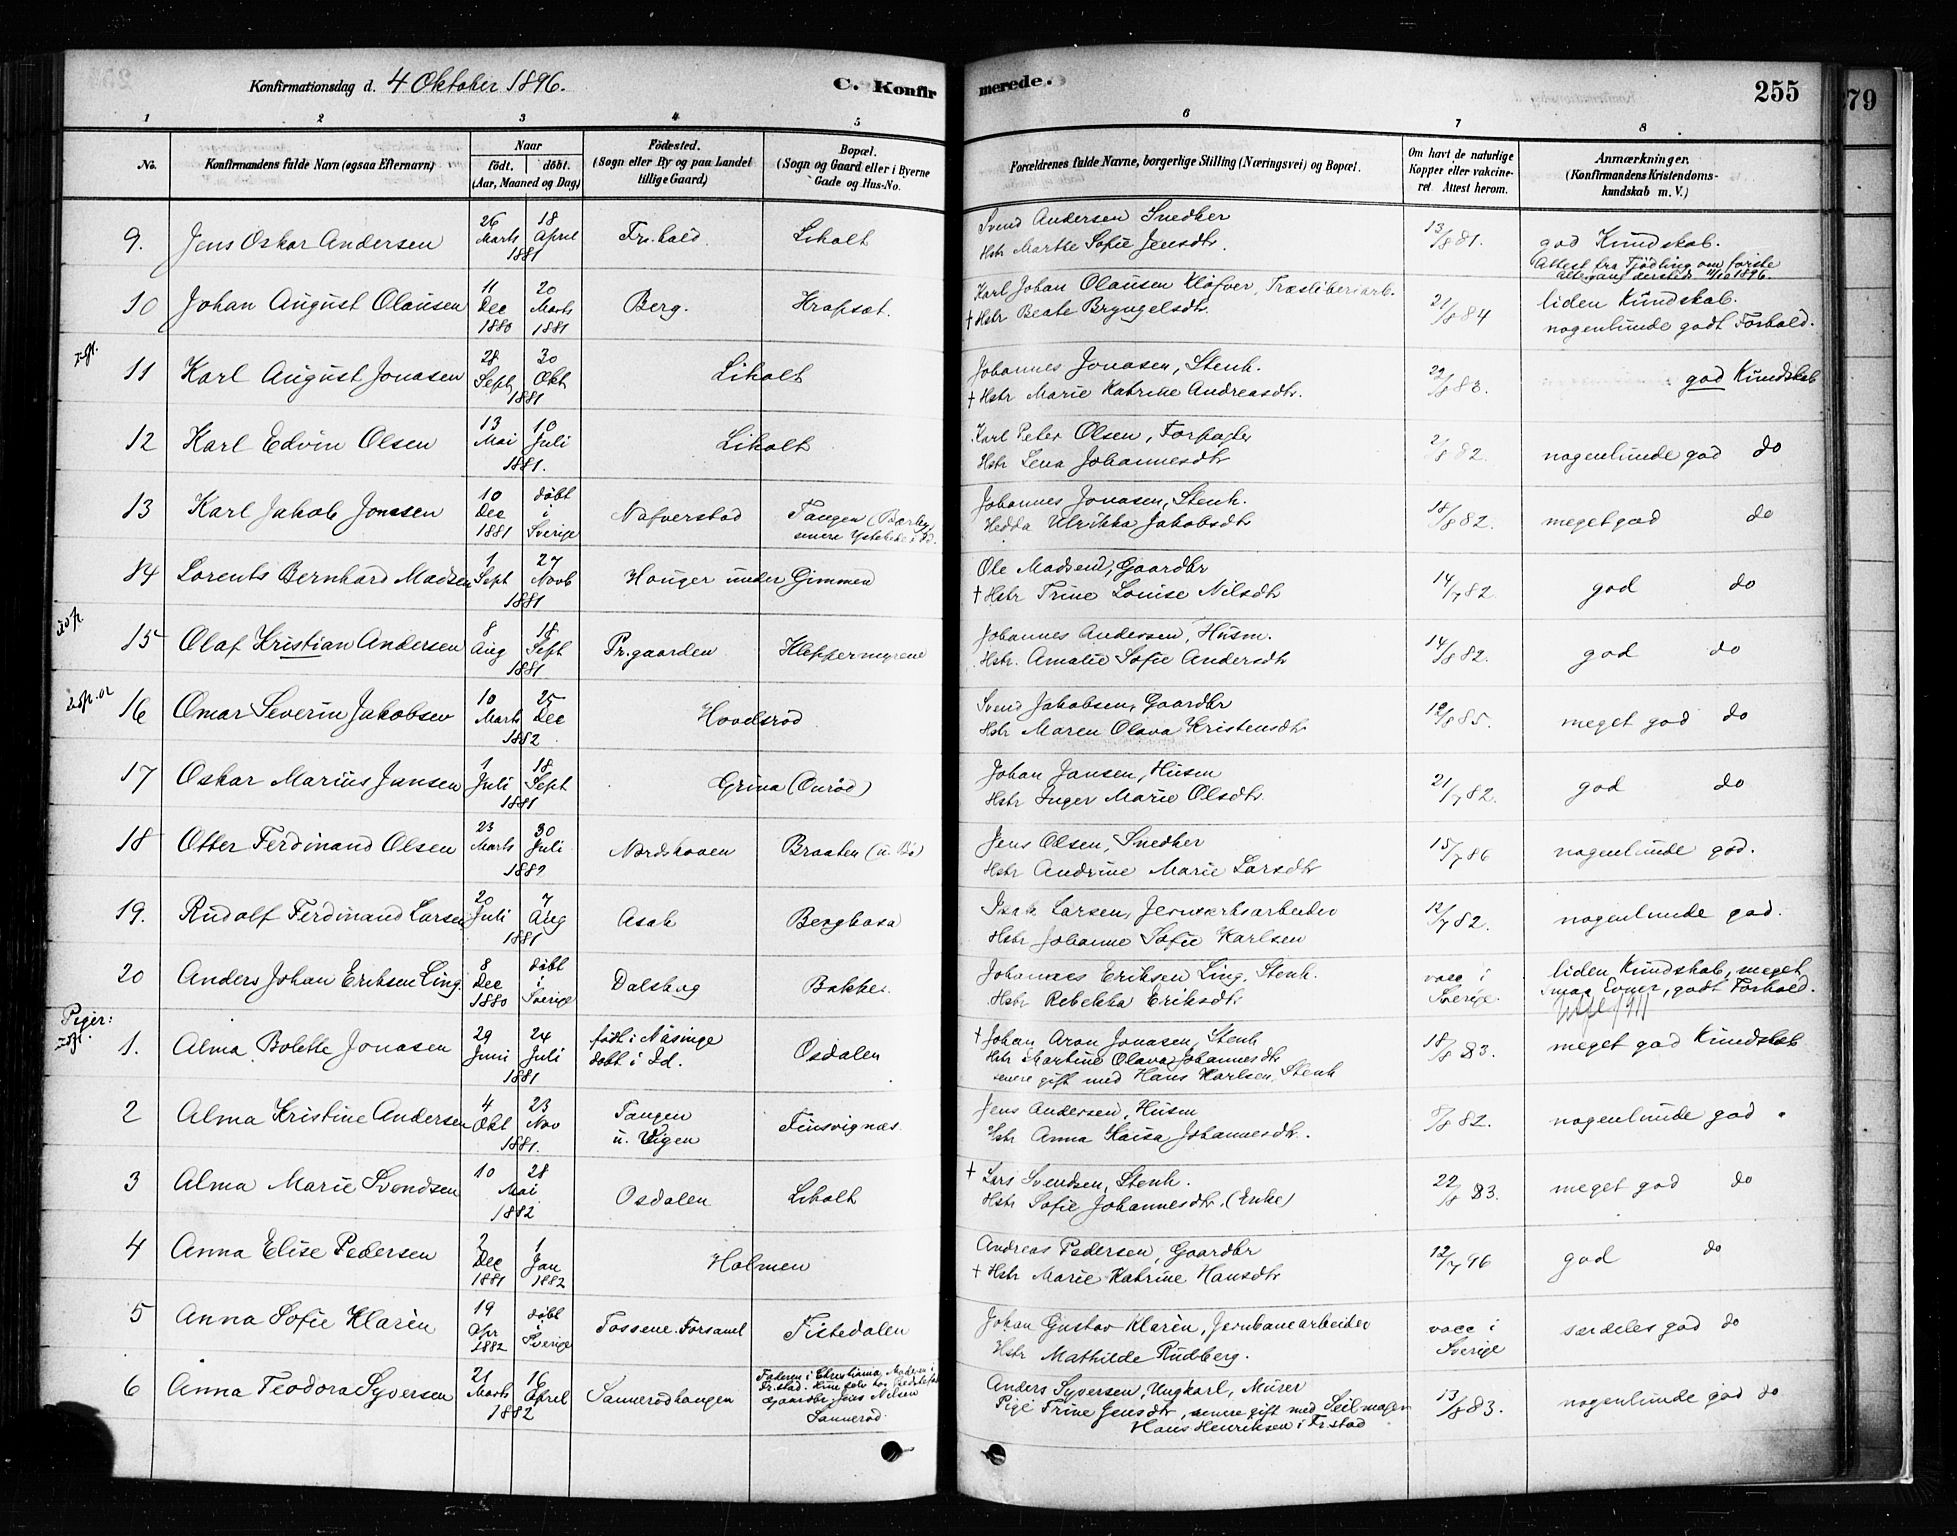 Konfirmationsdag d. 4 Oktober 1896. C. Konfir
merede. 255
79
1 2 3 4 5
6 7 8
No. Konfirmandens fulde Navn (ogsaa Efternavn) Naar født. døbt. (Aar, Maaned og Dag) Fødested. (Sogn eller By og paa Landet tillige Gaard) Bopæl. (Sogn og Gaard eller i Byerne Gade og Hus-No.
Forældrenes fulde Navne, borgerlige Stilling (Næringsvei) og Bopæl. Om havt de naturlige Kopper eller vakcineret. Attest herom. Anmærkninger. (Konfirmandens Kristendomskundskab m. V.)
9. Jens Oskar Andersen 26 Marts 18 April 1881 Fr.hald. Liholt
Svend Andersen Snedker
Hstr Marthe Sofie Jensdtr. 13/8 81. god Kundskab.
Attest fra Tjødling om første
altergang dersteds 11/10 1896.
10 Johan August Olausen 11 Dec 1880 20 Marts 1881 Berg. Krapsæt.
Karl Johan Olausen Kløfver, Træsliberiarb.
† Hstr Beate Bryngelsdtr. 21/8 84 liden Kundskab.
nogenlunde godt Forhold.
11 Karl August Jonasen 28 Sept 30 Okt 1881 Liholt
Johannes Jonasen, Stenh.
† Hstr Marie Katrine Andreasdtr. 29/8 83. god Kundskab
12 Karl Edvin Olsen 13 Mai 10 Juli 1881. Liholt
Karl Peter Olsen, Forpagter
Hstr Lena Johannesdtr 2/8 82. nogenlunde god do
13 Karl Jakob Jonasen 10 Dec 1881 døbt i Sverige Nafverstad Tangen (Bærby)
Johannes Jonasen, Stenh.
Hedda Ulrikka Jakobsdtr 18/8 82. meget god do
14 Lorents Bernhard Madsen 1 Sept 27 Novb 1881 Houger under Gimmen
Ole Madsen, Gaardbr
† Hstr Trine Louise Nilsdtr 14/7 82. god do
15 Olaf Kristian Andersen 8 Aug 18 Sept 1881 Pr.gaarden Kleppermyrene
Johannes Andersen, Husm.
Hstr. Amalie Sofie Andersdtr 14/8 82. god do
16 Omar Severin Jakobsen 10 Marts 25 Dec 1882 Hovdsrød
Svend Jakobsen, Gaardbr
Hstr Maren Olava Kristensdtr 19/8 85. meget god do
17 Oskar Marius Jansen 1 Juli 18 Sept 1881 Grina (Onrød)
Johan Jansen, Husm
Hstr Inger Marie Olsdtr. 21/7 82. god do
18 Otter Ferdinand Olsen 23 Marts 30 Juli 1882 Nordskoven Braaten (u. Bø)
Jens Olsen, Snedker
Hstr Andrine Marie Larsdtr 15/7 86 nogenlunde god.
19. Rudolf Ferdinand Larsen 20 Juli 7 Aug 1881 Asak Bergkasa
Isak Larsen, Jernverksarbeider
Hstr Johanne Sofie Karlsen 12/7 82. nogenlunde god.
20 Anders Johan Eriksen Ling. 8 Dec 1880 døbt i Sverige Dalskog Bakke.
Johannes Eriksen Ling, Stenh.
Hstr Rebekka Eriksdtr. vacc i Sverige. liden Kundskab, meget
smaa Evner, godt Forhold.
Piger:
1. Alma Bolette Jonasen 29 Juni 24 Juli 1881 født i Näsinge døbt i Id. Osdalen
† Johan Aron Jonasen, Stenh
Hstr Martine Olava Johannesdtr
senere gift med Hans Karlsen, Stenh 18/8 83. meget god Kundskab
2 Alma Kristine Andersen 4 Okt 23 Nov 1881. Tangen u. Vigen Finsvignæs.
Jens Andersen, Husm
Hstr Anna Kaisa Johannesdtr. 8/8 82. nogenlunde god.
3 Alma Marie Svendsen 10 28 Mai 1882 Osdalen Liholt
† Lars Svendsen, Stenh.
Hstr Sofie Johannesdtr. (Enke) 22/8 83. meget god do
4 Anna Elise Pedersen 2 Dec 1881 1 Jan 1882 Holmen
Andreas Pedersen, Gaardbr
† Hstr Marie Katrine Hansdtr 12/7 96 god do
5 Anna Sofie Klarèn 19 Apr 1882 døbt i Sverige Tossene Forsaml Tistedalen
Johan Gustav Klarèn, Jernbanearbeider
Hstr Mathilde Rudberg. vacc i Sverige særdeles god do
6 Anna Teodora Syversen 21 Marts 16 April 1882 Sannerødhaugen Faderen i Christiania, Moderen i Fr.stad.
Gaardbr Jens Nilsen Sannerød
Anders Syversen, Ungkarl, Murer
Pige Trine Jensdtr, senere gift med Seilmager
Hans Henriksen i Fr.stad 13/8 83. nogenlunde god do